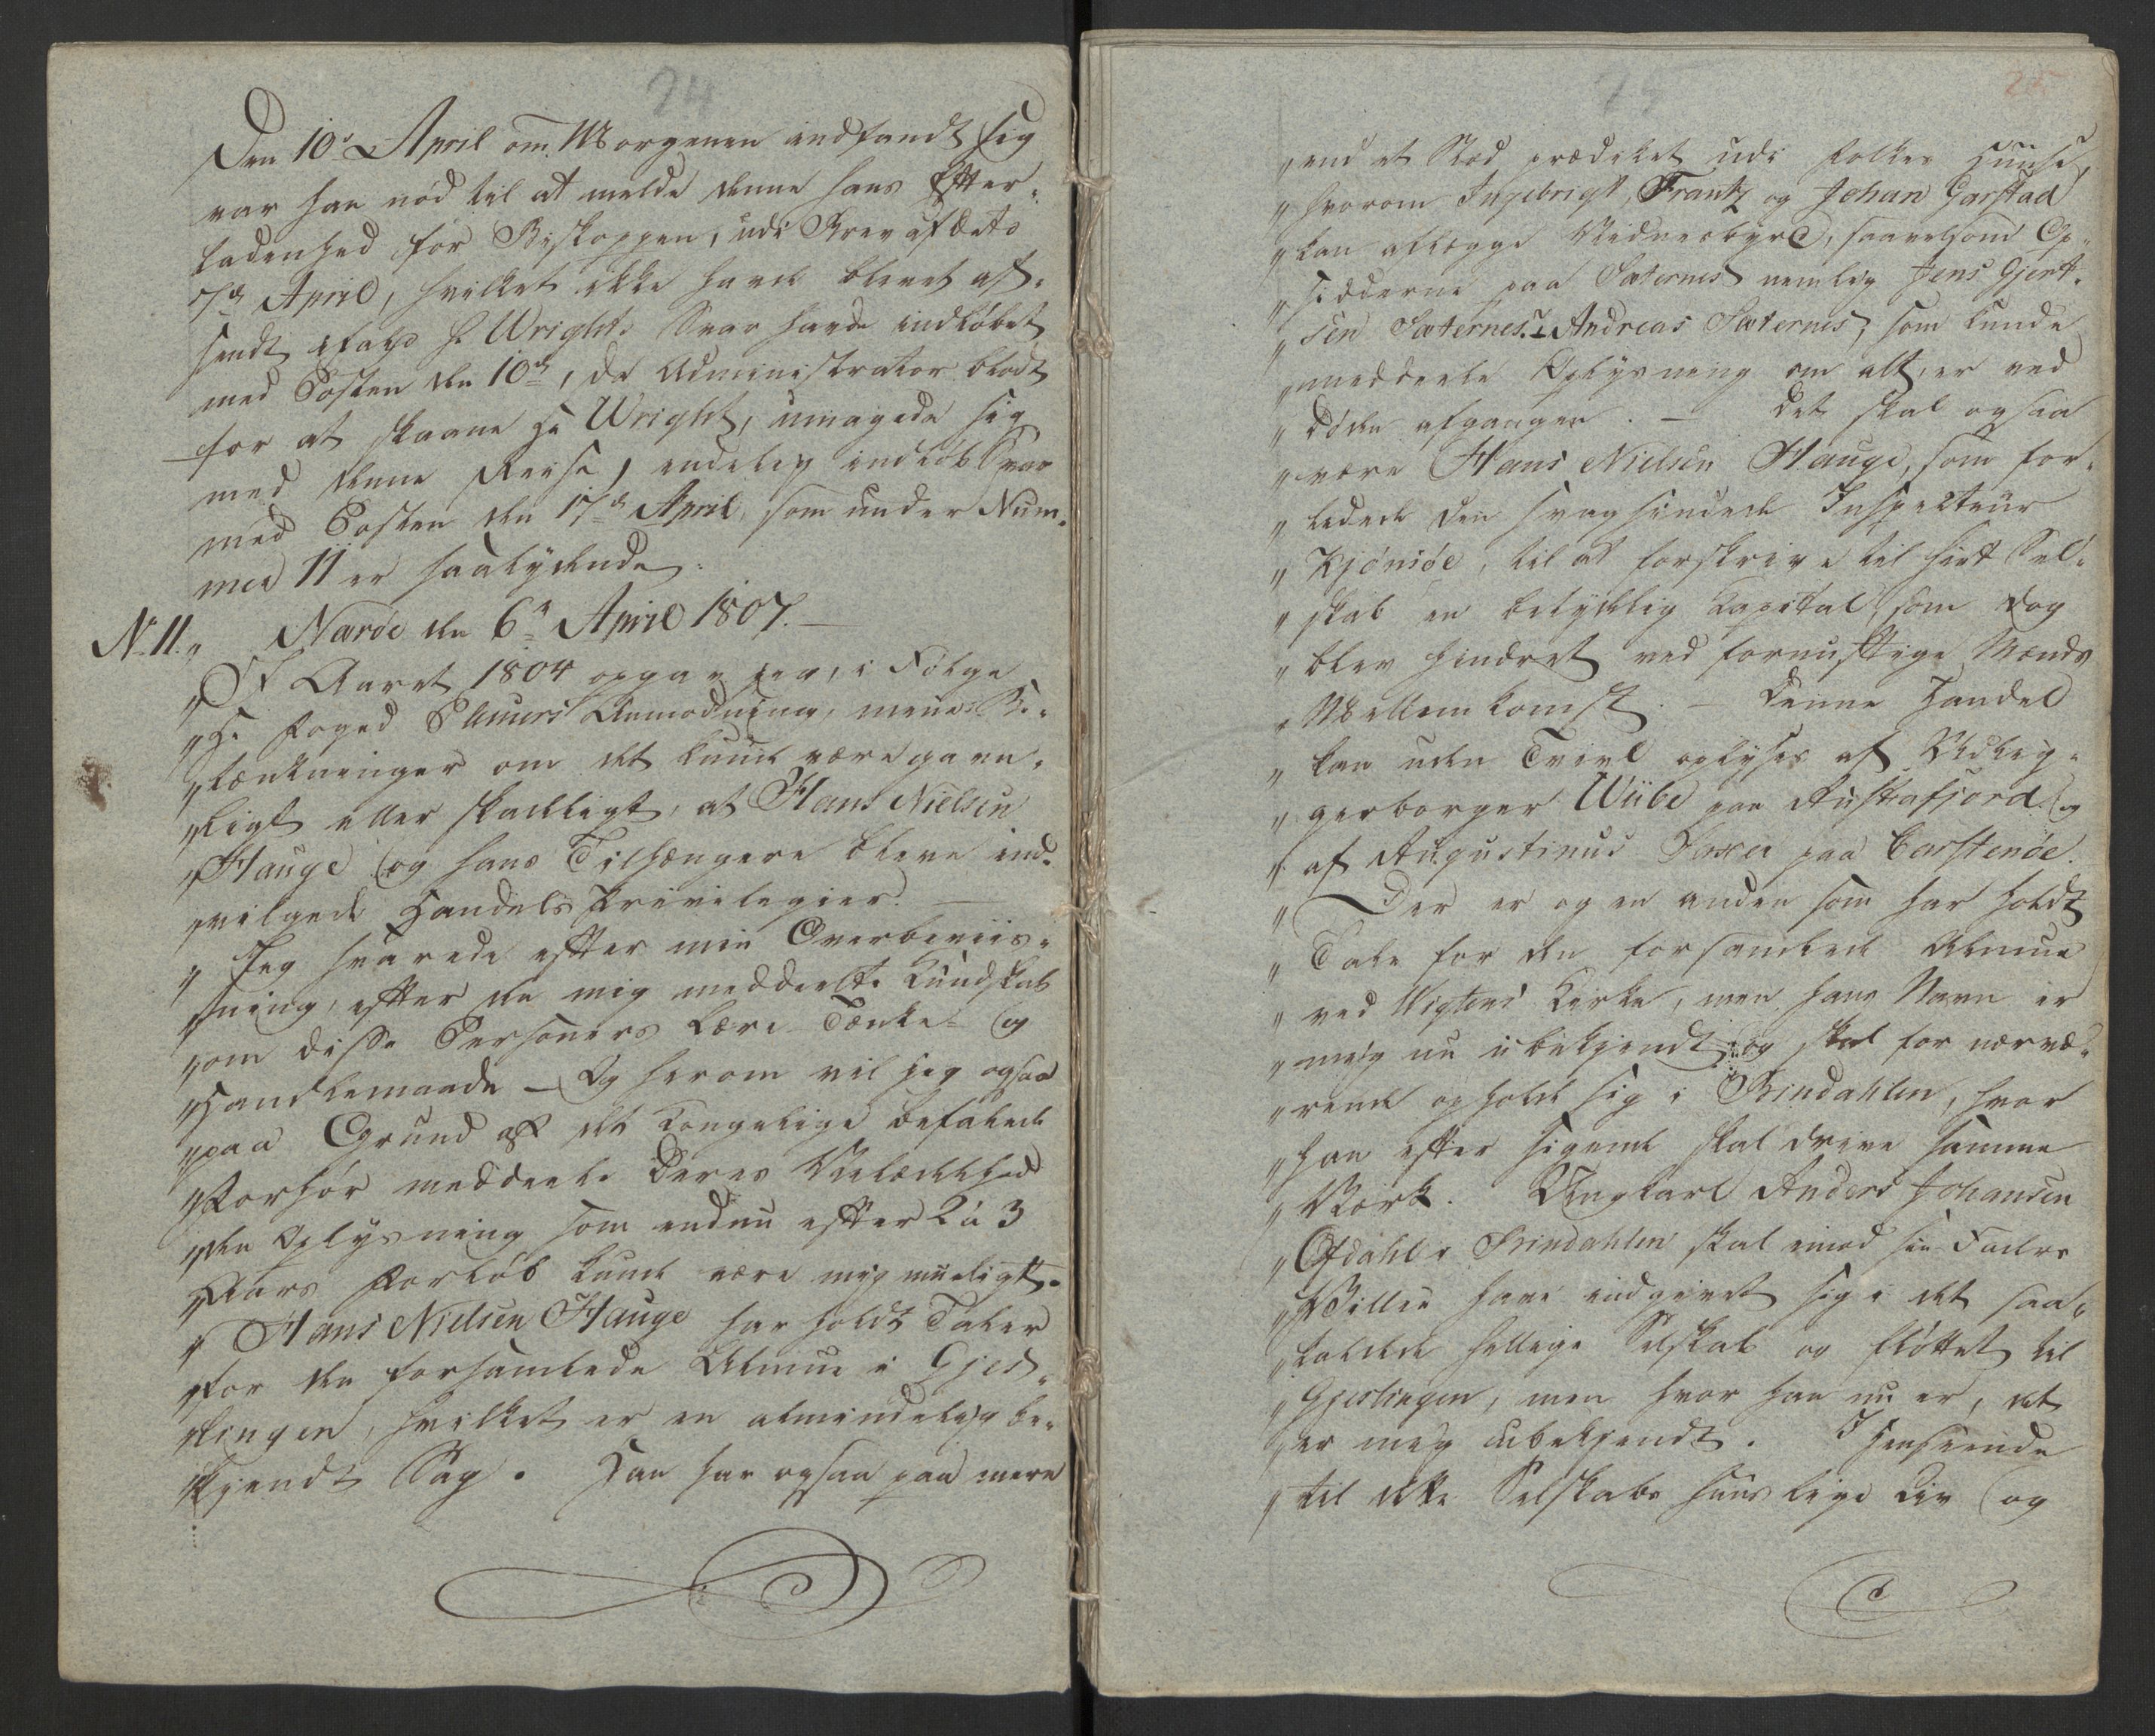 24
Den 10de April om Morgenen indfandt sig
var han nød til at melde denne hans Efter-
ladenhed for Biskoppen, udi Brev af Dato
7de April, hvilket ikke havde blevet af-
sendt ifald Hr Wrights Svar havde indløbet
med Posten den 10de, da Administrator blodt
for at skaane Hr Wright, umagede sig
med denne Reise, endelig indløb Svar
med Posten den 17de April, som under Num-
mer 11 er saalydende:
No 11. " Nærøe den 6te April 1807. —
" I Aaret 1804 opgav jeg, i Følge
" Hr Foged Plauers Anmodning, mine Be-
" tænkninger om det kunde være gavn-
" ligt eller skadeligt, at Hans Nielsen
" Hauge og hans Tilhængere bleve ind-
" vilgede Handels Privilegier. —
" Jeg svarede efter min Overbeviis-
" ning, efter den mig meddeelte Kundskab
" om disse Personers Lære Tænke- og
" Handlemaade — Og herom vil jeg ogsaa
" paa Grund af det Kongelige befalede
" Forhør meddeele Deres Velædelhed
" den Oplysning som endnu efter 2 à 3
" Aars Forløb kunde være mig mueligt.
" Hans Nielsen Hauge har holdt Taler
" for den forsamlede Almue i Gjes-
" lingen, hvilket er en almindelig be-
" kjendt Sag. Han har ogsaa paa mere
25
" end et Sted prædiket udi Folkes Huuse,
" hvorom Ingebrigt, Frantz og Johan Garstad
" kan aflægge Vidnesbyrd, saavelsom Op-
" sidderne paa Sæternes nemlig Jens Gjert-
" sen Sæternes & Andreas Sæternes, som kunde
" meddeele Oplysning om alt, er ved
" Døden afgangen. — Det skal ogsaa
" være Hans Nielsen Hauge, som for-
" ledede den svagsindede Inspecteur
" Kjønsøe, til at forskrive til hiint Sel-
" skab en betydelig Kapital, som dog
" blev hindret ved fornuftige Mænds
" Mellemkomst. — Denne Handel
" kan uden Tvivl oplyses af Udlig-
" gerborger Wiibe paa Austrafjord og
" af Augustinus paa Carstenøe.
" Der er og en anden som har holdt
" Tale for den forsamlede Almue
" ved Wigtens Kirke, men hans Navn er
" mig nu ubekjendt og skal for nærvæ-
" rende opholde sig i Bindahlen, hvor
" han efter sigende skal drive samme
" Værk. Ungkarl Anders Johansen
" Ofdahl i Bindahlen skal imod sin Faders
" Villie have indgivet sig i det saa-
" kaldede hellige Selskab og fløttet til
" Gjeslingen, men hvor han nu er, det
" er mig ubekjendt. I Henseende
" til dette Selskabs huuslige Liv og